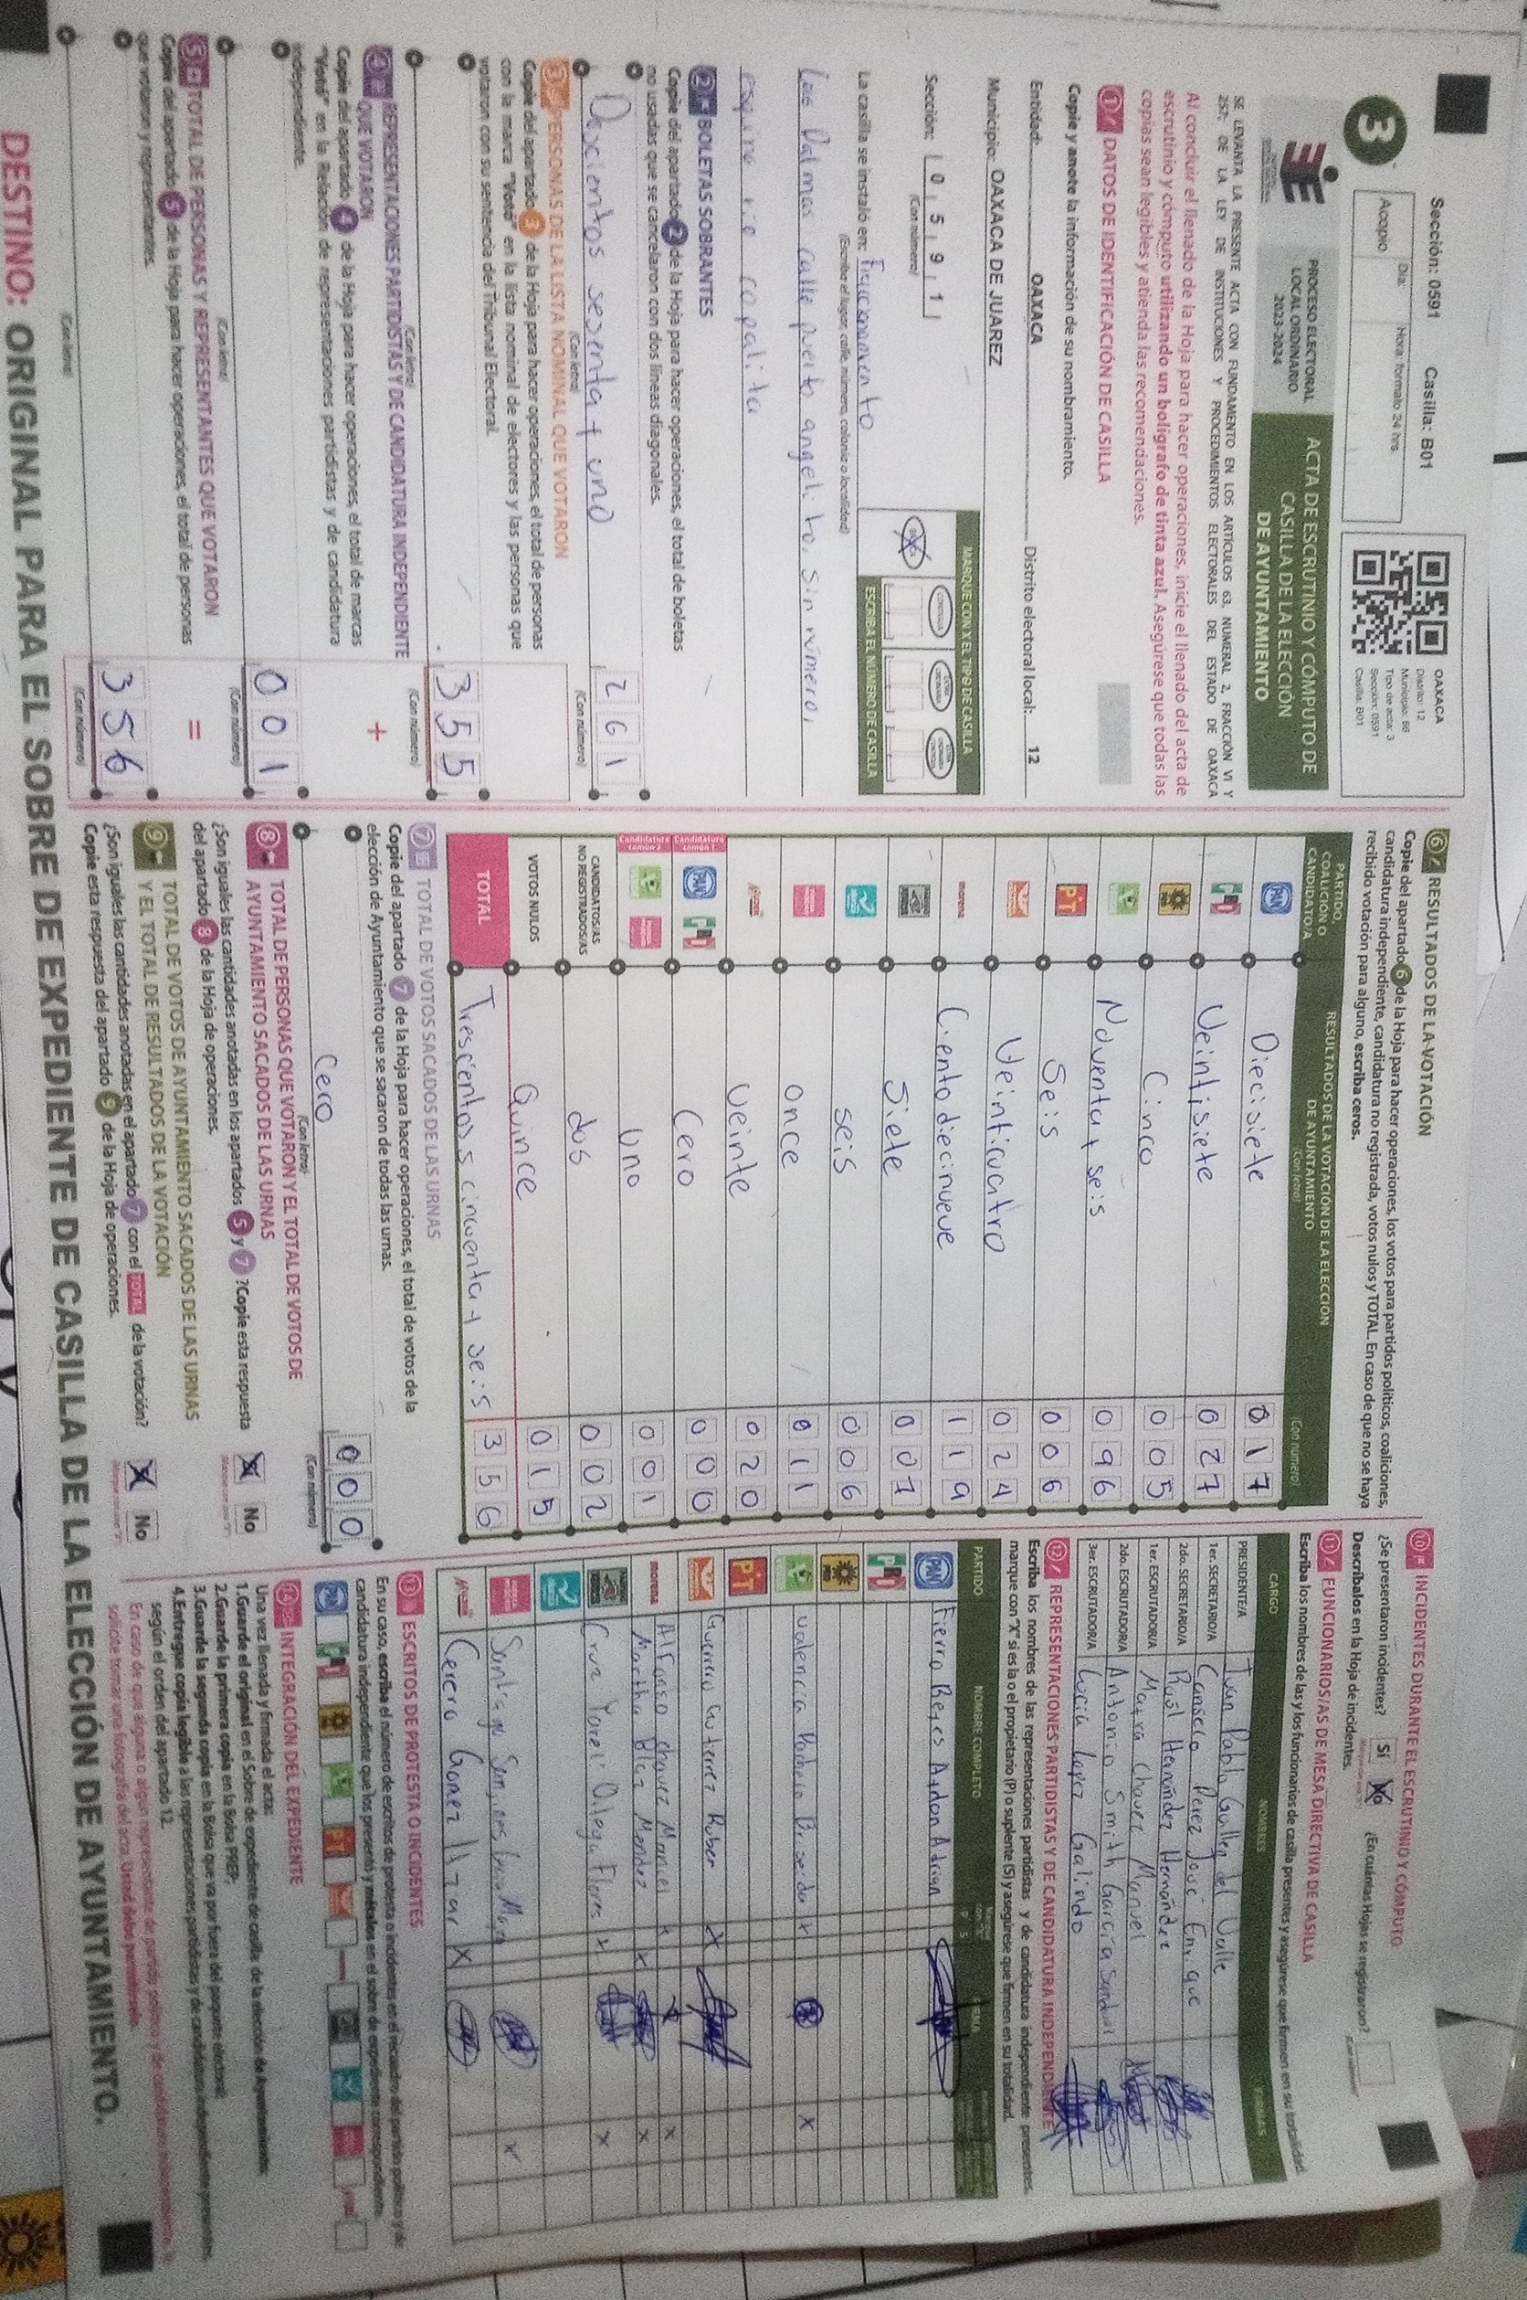 Sección: 0591 Casilla: B01
3
Día: Hora: formato 24 hrs.
Acopio
OAXACA
Distrito: 12
Municipio: 66
Tipo de acta: 3
Sección: 0591
Casilla: B01
PROCESO ELECTORAL
LOCAL ORDINARIO
2023-2024
ACTA DE ESCRUTINIO Y CÓMPUTO DE
CASILLA DE LA ELECCIÓN
DE AYUNTAMIENTO
SE LEVANTA LA PRESENTE ACTA CON FUNDAMENTO EN LOS ARTÍCULOS 63, NUMERAL 2, FRACCIÓN VI Y
257; DE LA LEY DE INSTITUCIONES Y PROCEDIMIENTOS ELECTORALES DEL ESTADO DE OAXACA
Al concluir el llenado de la Hoja para hacer operaciones, inicie el llenado del acta de
escrutinio y cómputo utilizando un bolígrafo de tinta azul. Asegúrese que todas las
copias sean legibles y atienda las recomendaciones.
1 DATOS DE IDENTIFICACIÓN DE CASILLA
Copie y anote la información de su nombramiento.
Entidad: OAXACA Distrito electoral local: 12
Municipio: OAXACA DE JUAREZ
Sección: 0 5 9 1
(Con número)
MARQUE CON X EL TIPO DE CASILLA
ESCRIBA EL NÚMERO DE CASILLA
La casilla se instaló en: Fraccionamento
(Escriba el lugar, calle, número, colonia o localidad)
Luis Dalmas calle puerto angelito, sin número,
esquina rio copalita
2 BOLETAS SOBRANTES
Copie del apartado 2 de la Hoja para hacer operaciones, el total de boletas
no usadas que se cancelaron con dos líneas diagonales.
Doscientos sesenta y uno 261
(Con letra) (Con número)
3 PERSONAS DE LA LISTA NOMINAL QUE VOTARON
Copie del apartado 3 de la Hoja para hacer operaciones, el total de personas
con la marca "Votó" en la lista nominal de electores y las personas que
votaron con su sentencia del Tribunal Electoral.
355
(Con letra) (Con número)
4 REPRESENTACIONES PARTIDISTAS Y DE CANDIDATURA INDEPENDIENTE
QUE VOTARON
+
Copie del apartado 4 de la Hoja para hacer operaciones, el total de marcas
"Votó" en la Relación de representaciones partidistas y de candidatura
independiente.
001
(Con letra) (Con número)
5 TOTAL DE PERSONAS Y REPRESENTANTES QUE VOTARON
=
Copie del apartado 5 de la Hoja para hacer operaciones, el total de personas
que votaron y representantes.
356
(Con letra) (Con número)
6 RESULTADOS DE LA VOTACIÓN
Copie del apartado 6 de la Hoja para hacer operaciones, los votos para partidos políticos, coaliciones,
candidatura independiente, candidatura no registrada, votos nulos y TOTAL. En caso de que no se haya
recibido votación para alguno, escriba ceros.
PARTIDO,
COALICIÓN O
CANDIDATO/A
RESULTADOS DE LA VOTACIÓN DE LA ELECCIÓN
DE AYUNTAMIENTO
(Con letra) (Con número)
PAN Diecisiete 017
PRI Veintisiete 027
PRD Cinco 005
Noventa y seis 096
PT Seis 006
Veinticuatro 024
morena Ciento diecinueve 119
Siete 007
seis 006
once 011
veinte 020
Candidatura común 1 PAN PRI Cero 000
Candidatura común 2 uno 001
CANDIDATOS/AS
NO REGISTRADOS/AS dos 002
VOTOS NULOS Quince 015
TOTAL Trescientos cincuenta y seis 356
7 TOTAL DE VOTOS SACADOS DE LAS URNAS
Copie del apartado 7 de la Hoja para hacer operaciones, el total de votos de la
elección de Ayuntamiento que se sacaron de todas las urnas.
Cero 000
(Con letra) (Con número)
8 TOTAL DE PERSONAS QUE VOTARON Y EL TOTAL DE VOTOS DE
AYUNTAMIENTO SACADOS DE LAS URNAS
¿Son iguales las cantidades anotadas en los apartados 5 y 7 ?Copie esta respuesta
del apartado 8 de la Hoja de operaciones.
No
9 TOTAL DE VOTOS DE AYUNTAMIENTO SACADOS DE LAS URNAS
Y EL TOTAL DE RESULTADOS DE LA VOTACIÓN
¿Son iguales las cantidades anotadas en el apartado 7 con el TOTAL de la votación?
Copie esta respuesta del apartado 9 de la Hoja de operaciones.
No
10 INCIDENTES DURANTE EL ESCRUTINIO Y CÓMPUTO
¿Se presentaron incidentes? Sí No ¿En cuántas Hojas se registraron?
Descríbalos en la Hoja de incidentes.
11 FUNCIONARIOS/AS DE MESA DIRECTIVA DE CASILLA
Escriba los nombres de las y los funcionarios de casilla presentes y asegúrese que firmen en su totalidad.
CARGO NOMBRES FIRMAS
PRESIDENTE/A Juan Pablo Guillen del Valle
1er. SECRETARIO/A Canseco Perez José Enrique
2do. SECRETARIO/A Raúl Hernández Hernández
1er. ESCRUTADOR/A Mayra Chavez Manuel
2do. ESCRUTADOR/A Antonio Smith García Sandoval
3er. ESCRUTADOR/A Lucia Lopez Galindo
12 REPRESENTACIONES PARTIDISTAS Y DE CANDIDATURA INDEPENDIENTE
Escriba los nombres de las representaciones partidistas y de candidatura independiente presentes,
marque con "X" si es la o el propietario (P) o suplente (S) y asegúrese que firmen en su totalidad.
PARTIDO NOMBRE COMPLETO
PAN Fierro Reyes Aydan Adrian
PRI
PRD
Valencia Pacheco Briseida x x
PT
Guerrero Gutierrez Ruber X
morena Alfonso Chavez Manuel x x
Martha Blaz Mendez x x
Cruz Yareli Dilega Flores x x
x
Cerero Gomez X
13 ESCRITOS DE PROTESTA O INCIDENTES
En su caso, escriba el número de escritos de protesta o incidentes en el recuadro del partido político y de
candidatura independiente que los presentó y métalos en el sobre de expediente correspondiente.
14 INTEGRACIÓN DEL EXPEDIENTE
Una vez llenada y firmada el acta:
1.Guarde el original en el Sobre de expediente de casilla de la elección de Ayuntamiento;
2.Guarde la primera copia en la Bolsa PREP;
3.Guarde la segunda copia en la Bolsa que va por fuera del paquete electoral;
4.Entregue copia legible a las representaciones partidistas y de candidatura independiente presentes,
según el orden del apartado 12.
En caso de que alguna o algún representante de partido político y de candidatura independiente, le
solicite tomar una fotografía del acta. Usted debe permitírselo.
DESTINO: ORIGINAL PARA EL SOBRE DE EXPEDIENTE DE CASILLA DE LA ELECCIÓN DE AYUNTAMIENTO.